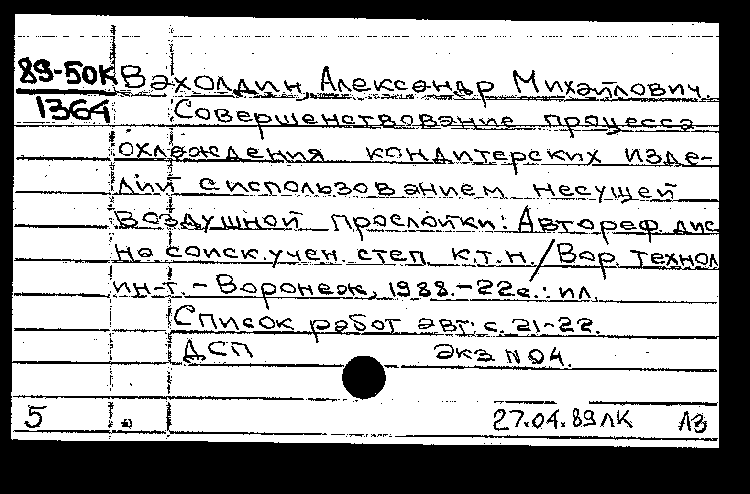 89-50К Вахолдин, Александр Михайлович.
1364 Совершенствование процесса
охлаждения кондитерских изде-
лий с использованием несущей
воздушной прослойки: Автореф. дис
на соиск. учен. степ к.т.н./Вор. технол
ин-т. - Воронеж, 1988. - 22 с.: ил.
Список работ авт: с. 21-22.
ДСП Экз N 04.
5 27.04.89 ЛК ЛЗ